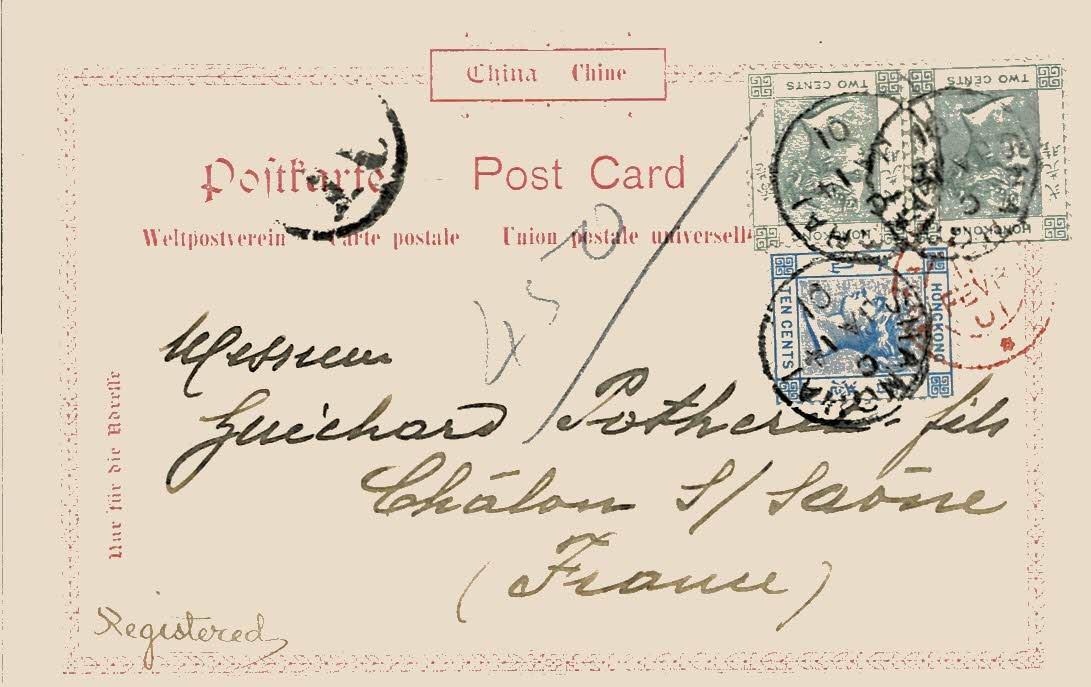 China Chine
Postkarte Post Card
Weltpostverein Carte postale Union postale universelle
TWO CENTS
HONGKONG
TWO CENTS
HONGKONG
TEN CENTS
HONGKONG
Messieurs
Guichard Potheret fils
Châlon S/ Saône
(France)
Registered
Nur für die Adresse